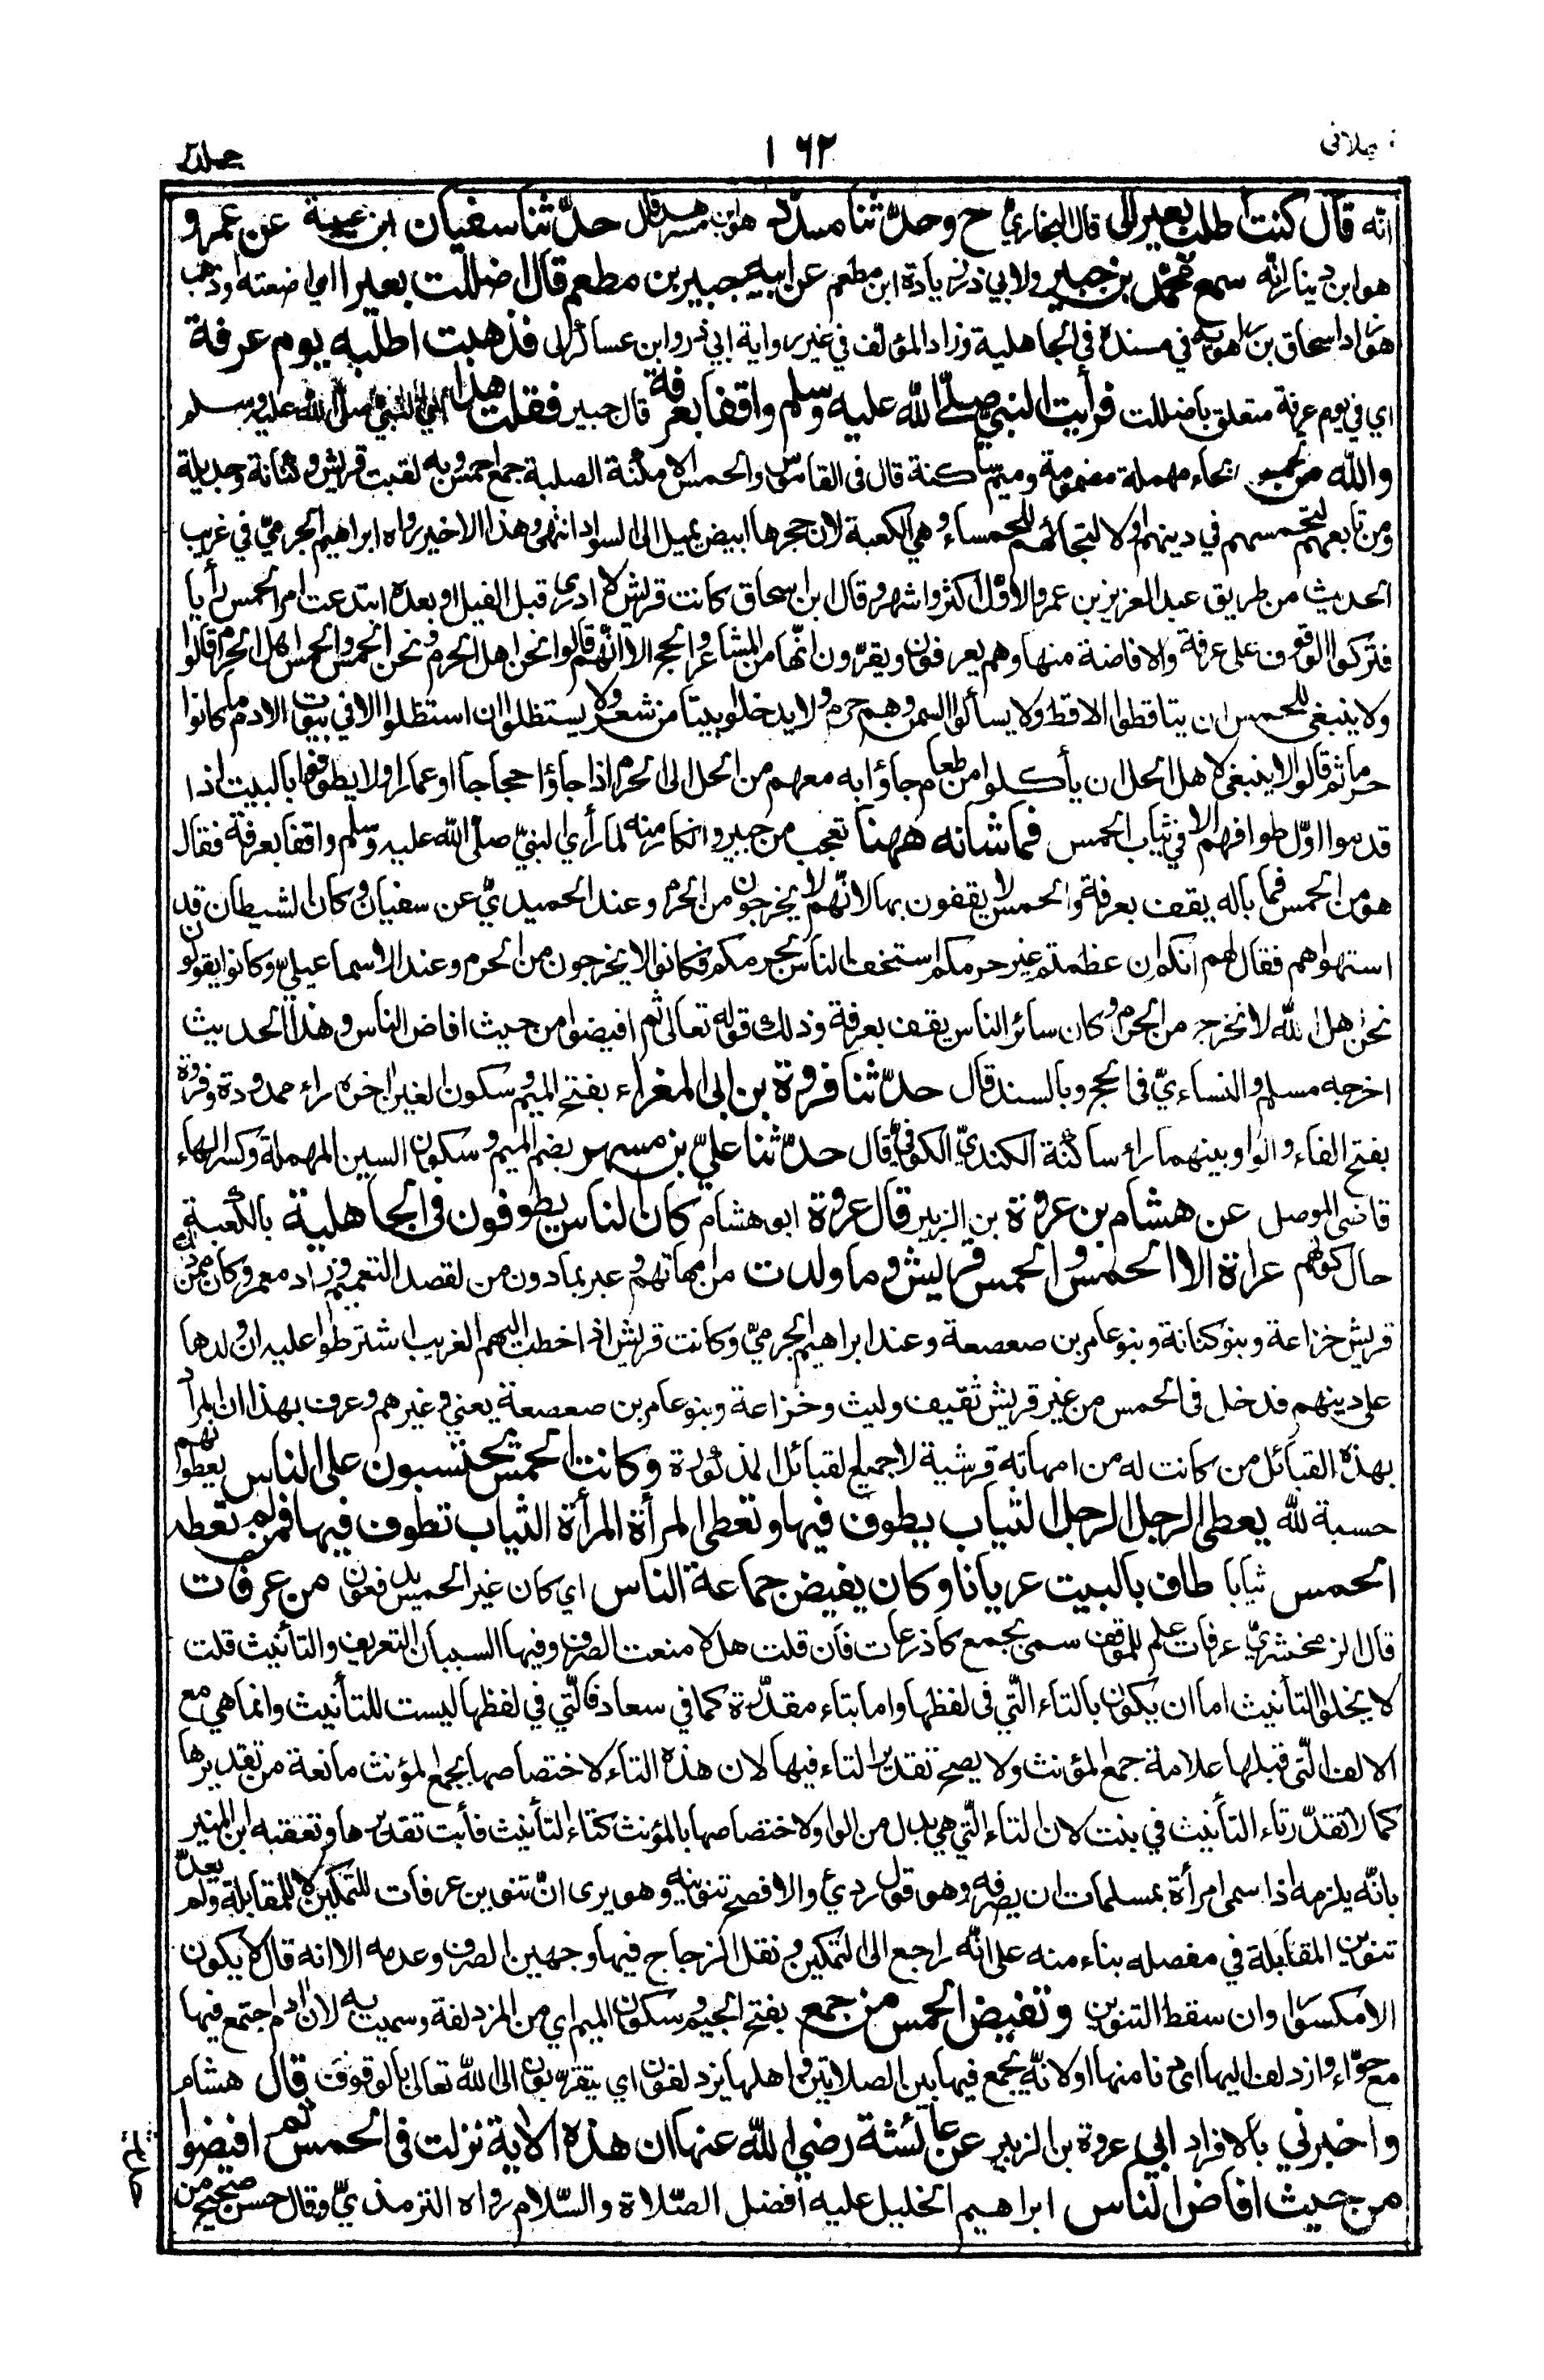 جلد ٣
١٦٢
انه قال كنت اطلب بعيرا لي قال البخاري ح وحدثنا مسدد هو ابن مسرهد قال حدثنا سفيان ابن عيينة عن عمرو
هو ابن دينار انه سمع محمد بن جبير ولابي ذر زيادة ابن مطعم عن ابيه جبير بن مطعم قال اضللت بعيرا اي اضعته او ذهب
هو زاد اسحاق بن راهويه في مسنده في الجاهلية وزاد المؤلف في غير رواية ابي ذر وابن عساكر لي فذهبت اطلبه يوم عرفة
اي في يوم عرفة متعلق باضللت فرأيت النبي صلى الله عليه وسلم واقفا بعرفة قال جبير فقلت هذا اي النبي صلى الله عليه وسلم
والله من الحمس بحاء مهملة مضمومة وميم ساكنة قال في القاموس والحمس الامكنة الصلبة جمع احمس وبه لقبت قريش وكنانة وجديلة
ومن تابعهم لتحمسهم في دينهم او لالتجائهم للحمساء وهي الكعبة لان حجرها ابيض يميل الى السواد انتهى وهذا الاخير رواه ابراهيم الحربي في غريب
الحديث من طريق عبد العزيز بن عمر والاول اكثر واشهر وقال ابن اسحاق كانت قريش لا ادري قبل الفيل او بعده ابتدعت امر الحمس رأيا
فتركوا الوقوف على عرفة والافاضة منها وهم يعرفون ويقرون انها من المشاعر والحج الا انهم قالوا نحن اهل الحرم ونحن الحمس والحمس اهل الحرم قالوا
ولا ينبغي للحمس ان يتاقطوا الاقط ولا يسألوا السمن وهم حرم ولا يدخلوا بيتا من شعر ولا يستظلوا ان استظلوا الا في بيوت الادم ما كانوا
حرما ثم قالوا لا ينبغي لاهل الحل ان يأكلوا من طعام جاؤا به معهم من الحل الى الحرم اذا جاؤا حجاجا او عمارا ولا يطوفوا بالبيت اذا
قدموا اول طوافهم الا في ثياب الحمس فما شانه ههنا تعجب من جبير وانكار منه لما رأى النبي صلى الله عليه وسلم واقفا بعرفة فقال
هو من الحمس فما باله يقف بعرفة والحمس لا يقفون بها لانهم لا يخرجون من الحرم وعند الحميدي عن سفيان وكان الشيطان قد
استهواهم فقال لهم انكم ان عظمتم غير حرمكم استخف الناس بحرمكم فكانوا لا يخرجون من الحرم وعند الاسماعيلي وكانوا يقولون
نحن اهل الله لا نخرج من الحرم وكان سائر الناس يقف بعرفة وذلك قوله تعالى ثم افيضوا من حيث افاض الناس وهذا الحديث
اخرجه مسلم والنساءي في الحج وبالسند قال حدثنا فروة بن ابي المغراء بفتح الميم وسكون الغين اخره راء ممدودة وفروة
بفتح الفاء والواو بينهما راء ساكنة الكندي الكوفي قال حدثنا علي بن مسهر بضم الميم وسكون السين المهملة وكسر الهاء
قاضي الموصل عن هشام بن عروة بن الزبير قال عروة ابو هشام كان الناس يطوفون في الجاهلية بالكعبة
حال كونهم عراة الا الحمس والحمس قريش وما ولدت من امهاتهم وعبر بما دون من لقصد التعميم وزاد معمر وكان ممن ولدت
قريش خزاعة وبنو كنانة وبنو عامر بن صعصعة وعند ابراهيم الحربي وكانت قريش اذا خطب اليهم الغريب اشترطوا عليه ان ولدها
على دينهم فدخل في الحمس من غير قريش ثقيف وليث وخزاعة وبنو عامر بن صعصعة يعني وغيرهم وعرف بهذا ان المراد
بهذه القبائل من كانت له من امهاته قرشية لا جميع القبائل المذكورة وكانت الحمس يحتسبون على الناس يعطونهم
حسبة لله يعطي الرجل الرجل الثياب يطوف فيها وتعطي المرأة المرأة الثياب تطوف فيها فمن لم تعطه
الحمس ثيابا طاف بالبيت عريانا وكان يفيض جماعة الناس اي كان غير الحمس يدفعون من عرفات
قال الزمخشري عرفات علم للموقف سمي بجمع كاذرعات فان قلت هلا منعت الصرف وفيها السببان التعريف والتأنيث قلت
لا يخلو التأنيث اما ان يكون بالتاء التي في لفظها واما بتاء مقدرة كما في سعاد فالتي في لفظها ليست للتأنيث وانما هي مع
الالف التي قبلها علامة جمع المؤنث ولا يصح تقدير التاء فيها لان هذه التاء لاختصاصها بجمع المؤنث مانعة من تقديرها
كما لا تقدر تاء التأنيث في بنت لان التاء التي هي بدل من الواو لاختصاصها بالمؤنث كتاء التأنيث فأبت تقديرها وتعقبه ابن المنير
بانه يلزمه اذا سمى امرأة بمسلمات ان يصرفه وهو قول رديء والافصح تنوينه وهو يرى ان تنوين عرفات للتمكين لا للمقابلة ولم يعد
تنوين المقابلة في مفصله بناء منه على انه راجع الى التمكين ونقل الزجاج فيها وجهين الصرف وعدمه الا انه قال لا يكون
الا مكسورا وان سقط التنوين وتفيض الحمس من جمع بفتح الجيم وسكون الميم اي من المزدلفة وسميت به لان ادم اجتمع فيها
مع حواء وازدلف اليها اي دنا منها او لانه يجمع فيها بين الصلاتين واهلها يزدلفون اي يتقربون الى الله تعالى بالوقوف قال هشام
واخبرني بالافراد ابي عروة بن الزبير عن عائشة رضي الله عنها ان هذه الاية نزلت في الحمس ثم افيضوا
من حيث افاض الناس ابراهيم الخليل عليه افضل الصلاة والسلام رواه الترمذي وقال حسن صحيح من